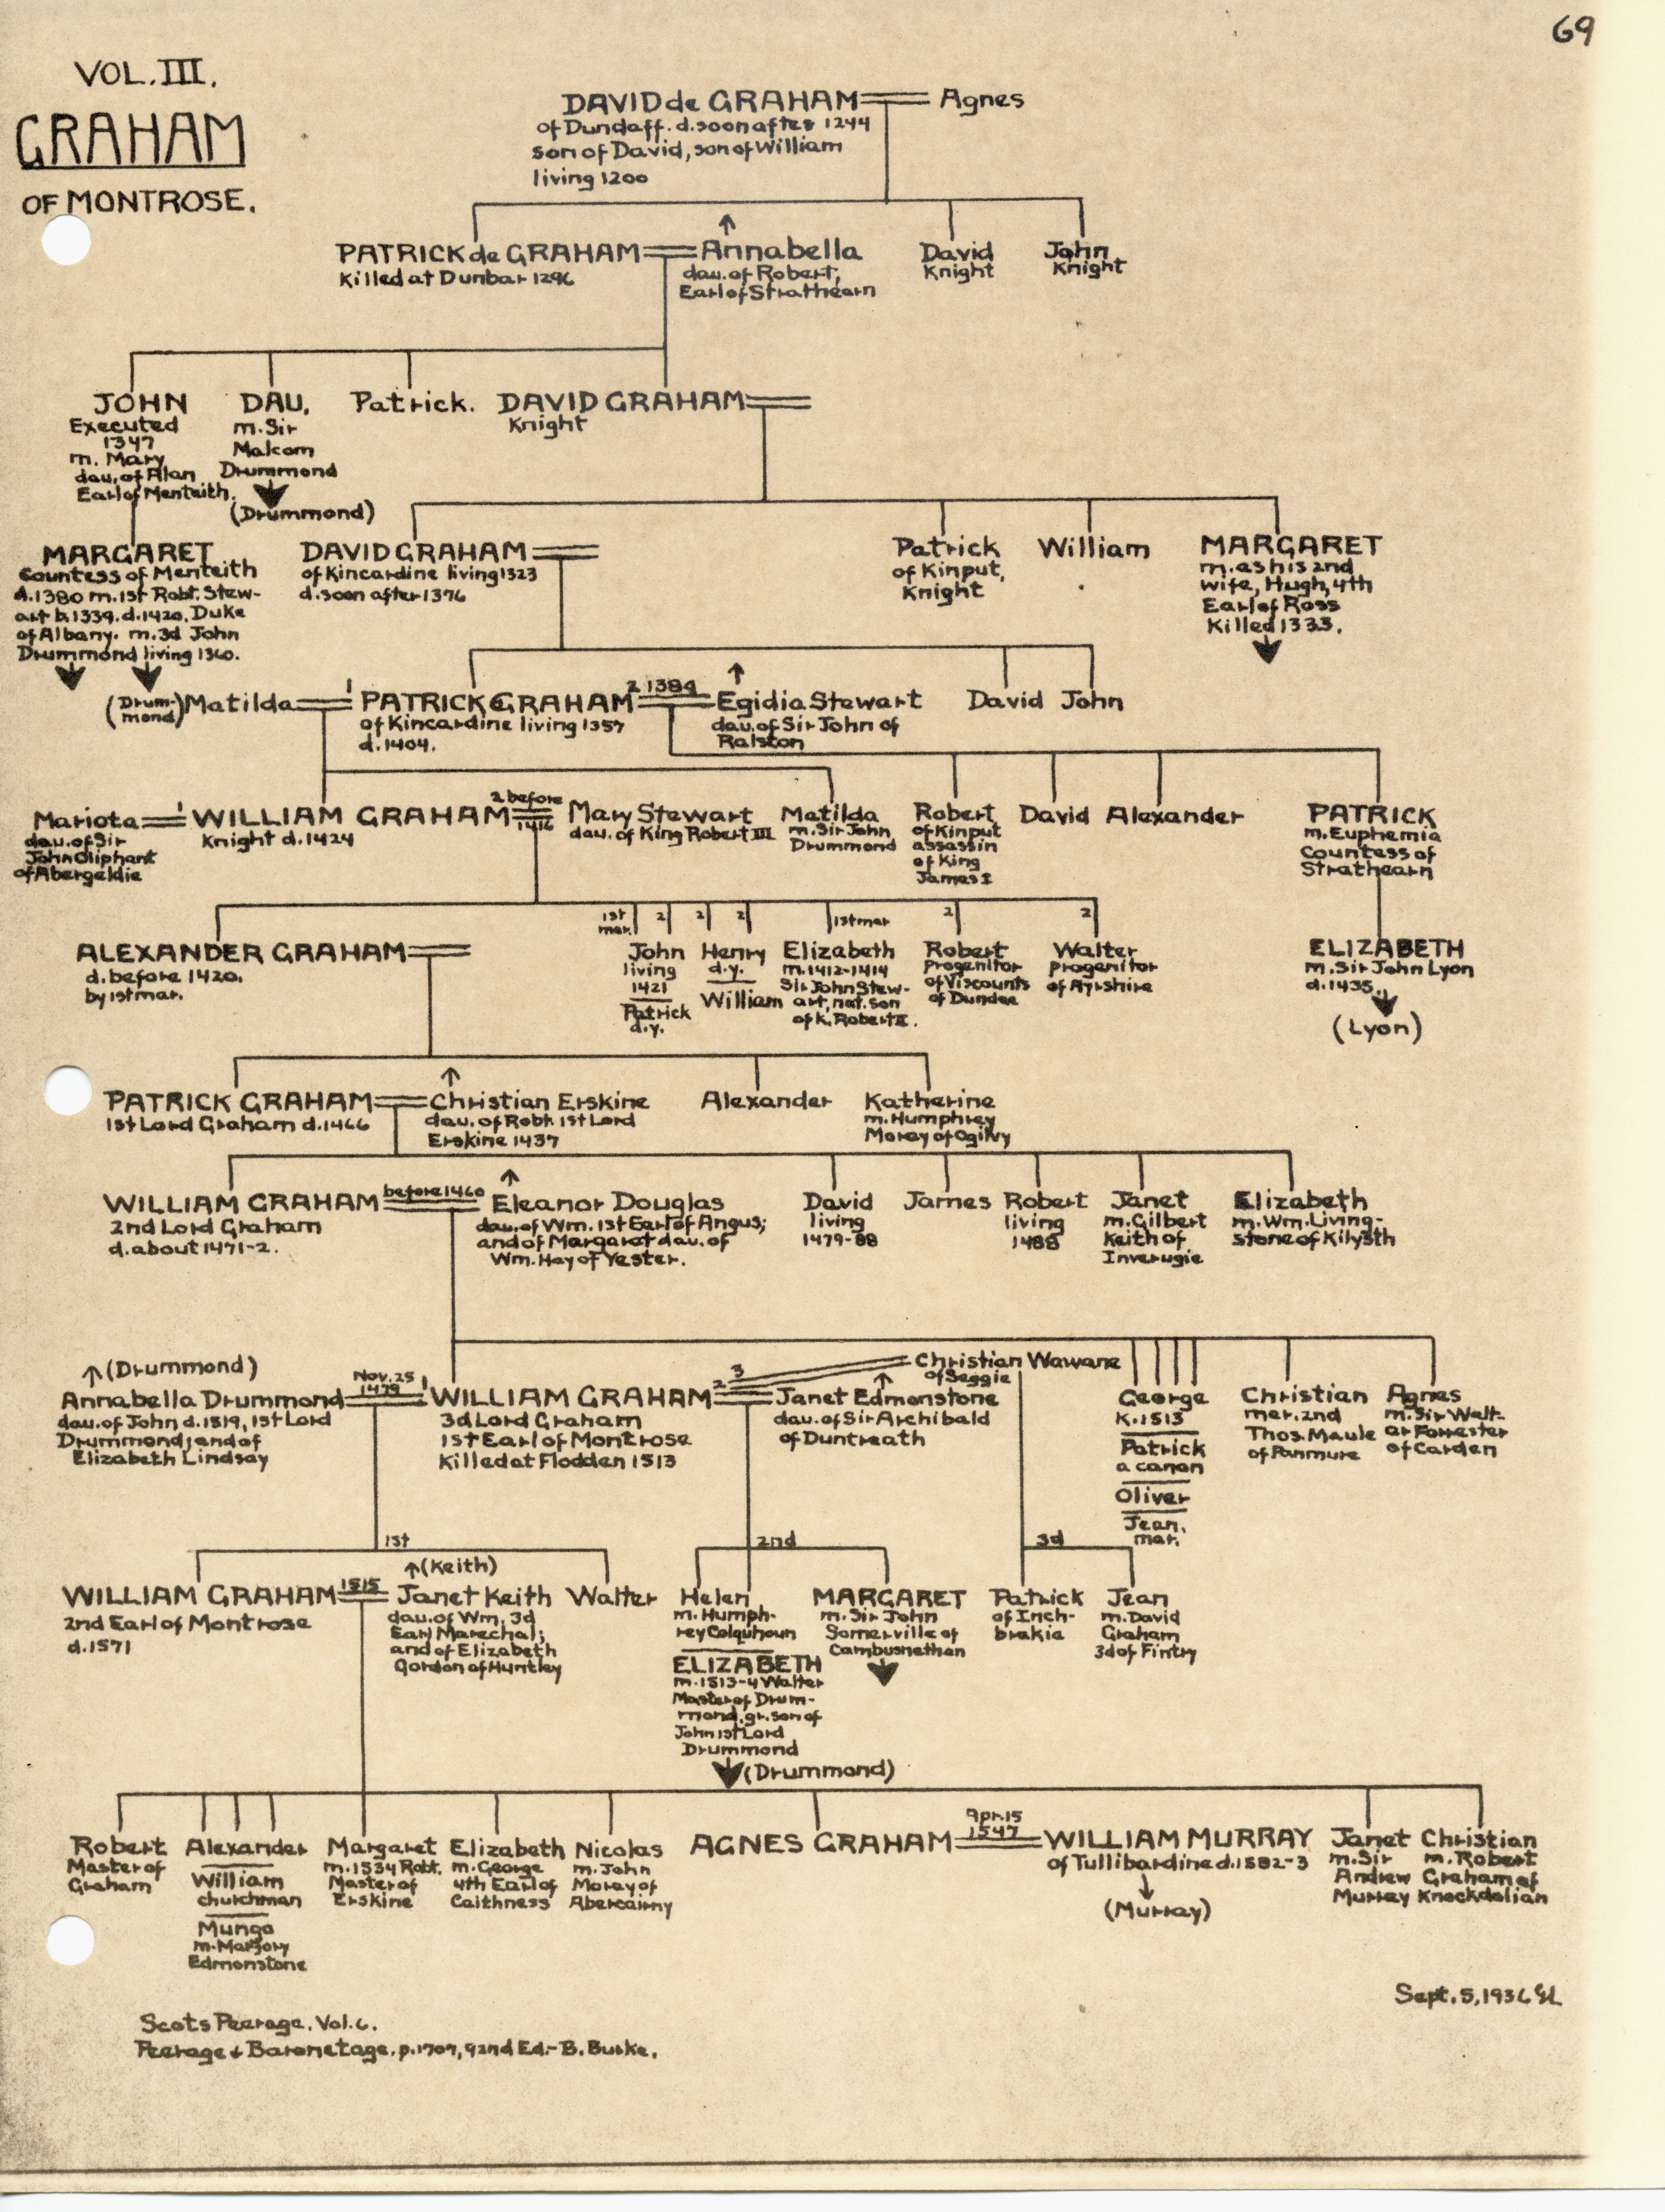 69
VOL. III.
GRAHAM
OF MONTROSE.
DAVID de GRAHAM Agnes
of Dundaff. d. soon after 1244
son of David, son of William
living 1200
PATRICK de GRAHAM Annabella David John
Killed at Dunbar 1296 dau. of Robert, Knight Knight
Earl of Strathearn
JOHN DAU. Patrick. DAVID GRAHAM
Executed m. Sir Knight
1347 Malcom
m. Mary Drummond
dau. of Alan
Earl of Menteith.
(Drummond)
MARGARET DAVID GRAHAM Patrick William MARGARET
Countess of Menteith of Kincardine living 1323 of Kinput, m. as his 2nd
d. 1380 m. 1st Robt. Stew- d. soon after 1376 Knight wife, Hugh, 4th
art b. 1339. d. 1420, Duke Earl of Ross
of Albany. m. 3d John Killed 1333.
Drummond living 1360.
(Drum-
mond) Matilda 1 PATRICK GRAHAM 2 1384 Egidia Stewart David John
of Kincardine living 1357 dau. of Sir John of
d. 1404. Ralston
Mariota 1 WILLIAM GRAHAM 2 before 1416 Mary Stewart Matilda Robert David Alexander PATRICK
dau. of Sir Knight d. 1424 dau. of King Robert III m. Sir John of Kinput m. Euphemia
John Oliphant Drummond assassin Countess of
of Abergeldie of King Strathearn
James I
1st mar. 2 2 2 1st mar 2 2
ALEXANDER GRAHAM John Henry Elizabeth Robert Walter ELIZABETH
d. before 1420. living d.y. m. 1412-1414 Progenitor progenitor m. Sir John Lyon
by 1st mar. 1421 William Sir John Stew- of Viscounts of Ayrshire d. 1435.
Patrick art, nat. son of Dundee
d.y. of K. Robert II.
(Lyon)
PATRICK GRAHAM Christian Erskine Alexander Katherine
1st Lord Graham d. 1466 dau. of Robt. 1st Lord m. Humphrey
Erskine 1437 Moray of Ogilvy
WILLIAM GRAHAM before 1460 Eleanor Douglas David James Robert Janet Elizabeth
2nd Lord Graham dau. of Wm. 1st Earl of Angus; living living m. Gilbert m. Wm. Living-
d. about 1471-2. and of Margaret dau. of 1479-88 1488 Keith of stone of Kilysth
Wm. Hay of Yester. Inverugie
(Drummond) Christian Wawane
of Seggie
Annabella Drummond Nov. 25 1479 1 WILLIAM GRAHAM 2 3 Janet Edmonstone George Christian Agnes
dau. of John d. 1519, 1st Lord 3d Lord Graham dau. of Sir Archibald K. 1513 mar. 2nd m. Sir Walt-
Drummond; and of 1st Earl of Montrose of Duntreath Patrick Thos. Maule er Forrester
Elizabeth Lindsay Killed at Flodden 1513 a canon of Panmure of Carden
Oliver
Jean,
mar.
1st 2nd 3d
(Keith)
WILLIAM GRAHAM 1515 Janet Keith Walter Helen MARGARET Patrick Jean
2nd Earl of Montrose dau. of Wm. 3d m. Humph- m. Sir John of Inch- m. David
d. 1571 Earl Marechal; rey Colquhoun Somerville of brakie Graham
and of Elizabeth Cambusnethan 3d of Fintry
Gordon of Huntley
ELIZABETH
m. 1513-4 Walter
Master of Drum-
mond, gr. son of
John 1st Lord
Drummond
(Drummond)
Robert Alexander Margaret Elizabeth Nicolas AGNES GRAHAM Apr. 15 1547 WILLIAM MURRAY Janet Christian
Master of William m. 1534 Robt. m. George m. John of Tullibardine d. 1582-3 m. Sir m. Robert
Graham churchman Master of 4th Earl of Moray of Andrew Graham of
Erskine Caithness Abercairny Murray Knockdolian
(Murray)
Mungo
m. Marjory
Edmonstone
Sept. 5, 1936
Scots Peerage. Vol. 6.
Peerage & Baronetage. p. 1707, 92nd Ed.- B. Burke.